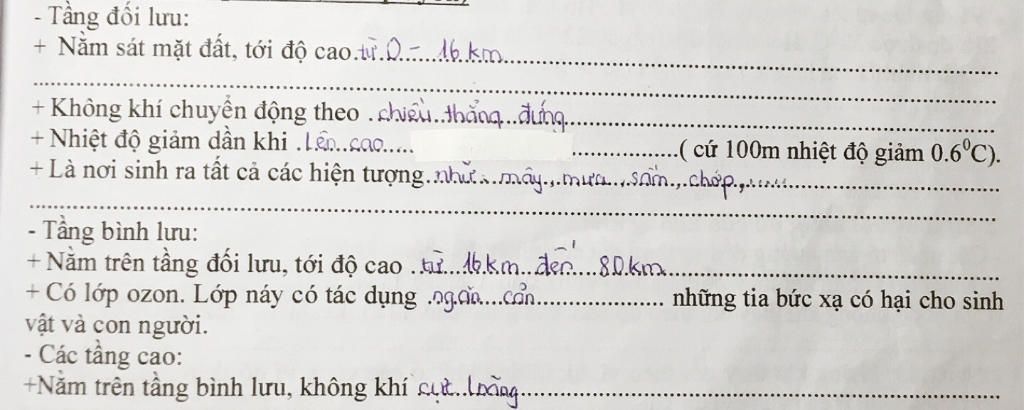 - Tầng đối lưu:
+ Nằm sát mặt đất, tới độ cao từ 0 - 16 km
+ Không khí chuyển động theo chiều thẳng đứng
+ Nhiệt độ giảm dần khi lên cao ( cứ 100m nhiệt độ giảm 0.6⁰C).
+ Là nơi sinh ra tất cả các hiện tượng như: mây, mưa, sấm, chớp,.....
- Tầng bình lưu:
+ Nằm trên tầng đối lưu, tới độ cao từ 16 km đến 80 km
+ Có lớp ozon. Lớp náy có tác dụng ngăn cản những tia bức xạ có hại cho sinh
vật và con người.
- Các tầng cao:
+Nằm trên tầng bình lưu, không khí cực loãng